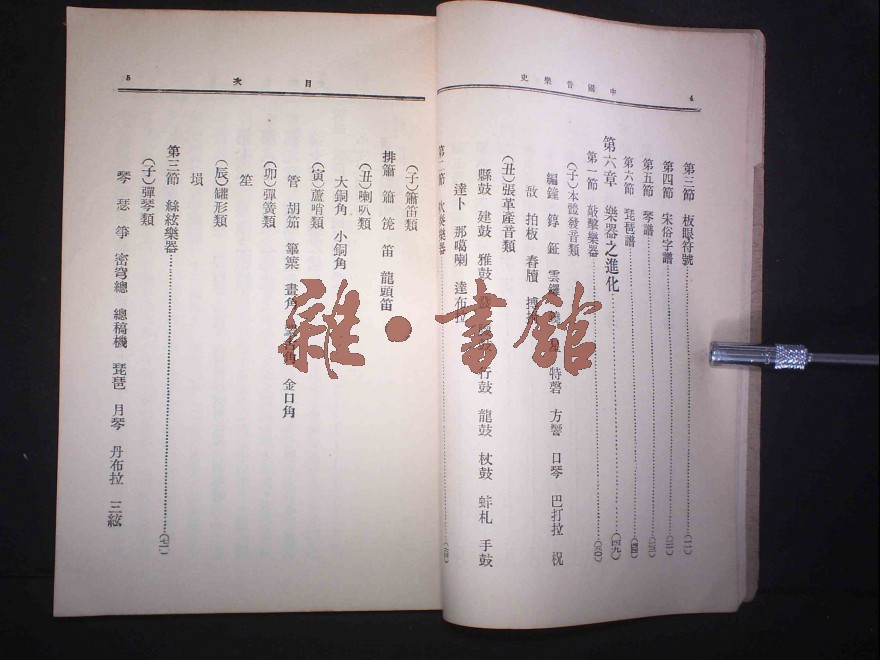 中國音樂史
4
第三節 板眼符號
第四節 宋俗字譜
第五節 琴譜
第六節 琵琶譜
第六章 樂器之進化
第一節 敲擊樂器
(子)本體發音類
編鐘 錞 鉦 雲鑼 特磬 方響 口琴 巴打拉 柷
敔 拍板 舂牘
(丑)張革產音類
縣鼓 建鼓 雅鼓 行鼓 龍鼓 杖鼓 蚌札 手鼓
達卜 那噶喇 達布拉
目次
5
(子)簫笛類
排簫 簫 箎 笛 龍頭笛
(丑)喇叭類
大銅角 小銅角
(寅)蘆哨類
管 胡笳 篳篥 畫角 金口角
(卯)彈簧類
笙
(辰)罐形類
塤
第三節 絲絃樂器
(子)彈琴類
琴 瑟 箏 密穹總 總稿機 琵琶 月琴 丹布拉 三絃
雜·書館